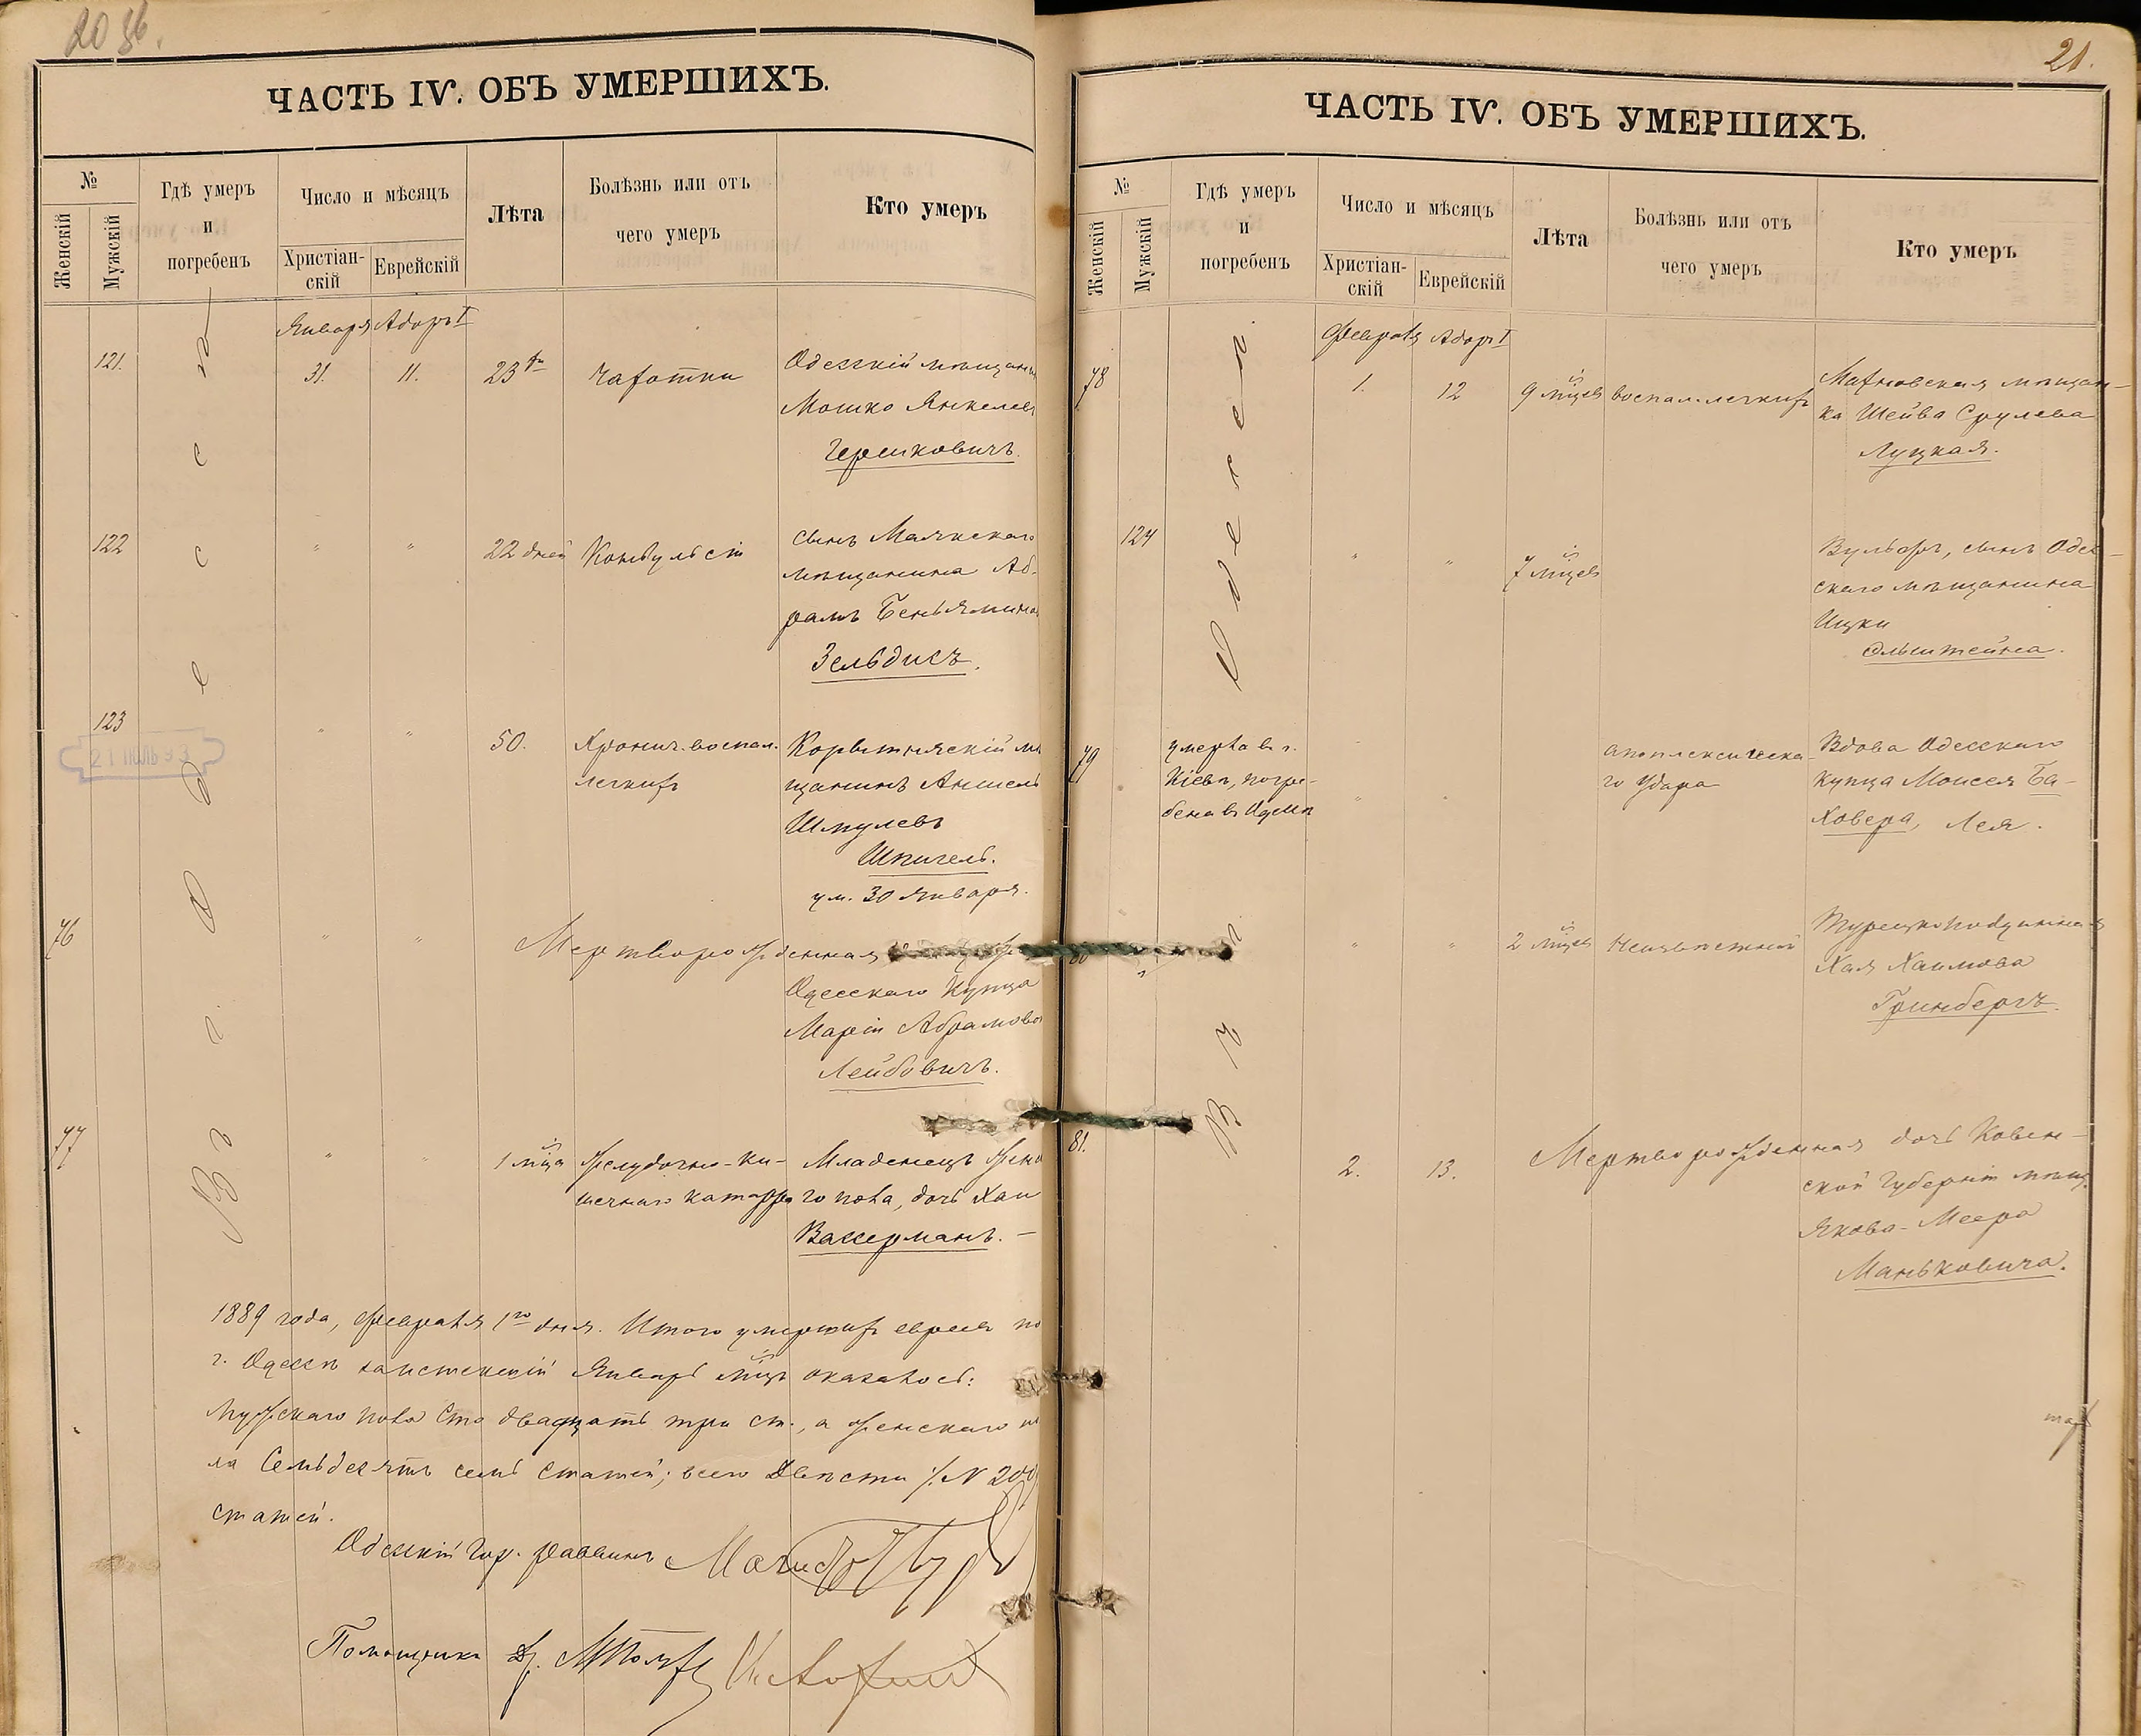 20 об.
ЧАСТЬ IV. ОБЪ УМЕРШИХЪ.
№
Женскій
Мужскій
Гдѣ умеръ
и
погребенъ
Число и мѣсяцъ
Христіан-
скій
Еврейскій
Лѣта
Болѣзнь или отъ
чего умеръ
Кто умеръ
Января Адоръ I
Въ г. Одессѣ
121. 31. 11. 23 Чахотки Одесскій мѣщанинъ
Мошко Янкелевъ
Гершковичъ.
122 " " 22 дней Конвульсіи сынъ Маякскаго
мѣщанина Аб-
рамъ Беньяминовъ
Зельдисъ.
123 " " 50. Хронич. воспал. Корытнскій мѣ
легкихъ щанинъ Аншель
Шмулевъ
Шпигель.
ум. 30 Января.
21 ІЮЛЬ 93
76 " " Мертворожденная
Одесскаго Купца
Маріи Абрамово
Лейбовичъ.
77 " " 1 мѣца Желудочно-ки- Младенецъ женска
шечнаго катарра го пола, дочь Хаи
Вассерманъ. —
1889 года, Февраля 1го дня. Итого умершихъ евреевъ по
г. Одессѣ за истекшій Январь мѣцъ оказалось:
Мужскаго пола Сто двадцать три ст., а женскаго по
ла Семьдесятъ семь статей; всего Двѣсти /№ 200/
статей.
Одесскій Гор. Раввинъ
Помощники Др.
21.
ЧАСТЬ IV. ОБЪ УМЕРШИХЪ.
№
Женскій
Мужскій
Гдѣ умеръ
и
погребенъ
Число и мѣсяцъ
Христіан-
скій
Еврейскій
Лѣта
Болѣзнь или отъ
чего умеръ
Кто умеръ
Февраля Адоръ I
Въ г. Одессѣ
78 1. 12 9 мѣцевъ воспал. легкихъ Махновская мѣщан-
ка Шейва Срулева
Луцкая.
124 " " 7 мѣцевъ Вульфъ, сынъ Одес-
скаго мѣщанина
Ицки
Эльштейна.
79 умерла въ г. апоплексическа- Вдова Одесскаго
Кіевѣ, погре- го удара купца Моисея Ба-
бена въ Одессѣ " " ховера, Лея.
80 " " 2 мѣцевъ Неизвѣстной Турецкоподданная
Хая Хаимова
Гринбергъ.
81. 2. 13. Мертворожденная дочь Ковен-
ской Губерніи мѣщ.
Якова-Меера
Маньковича.